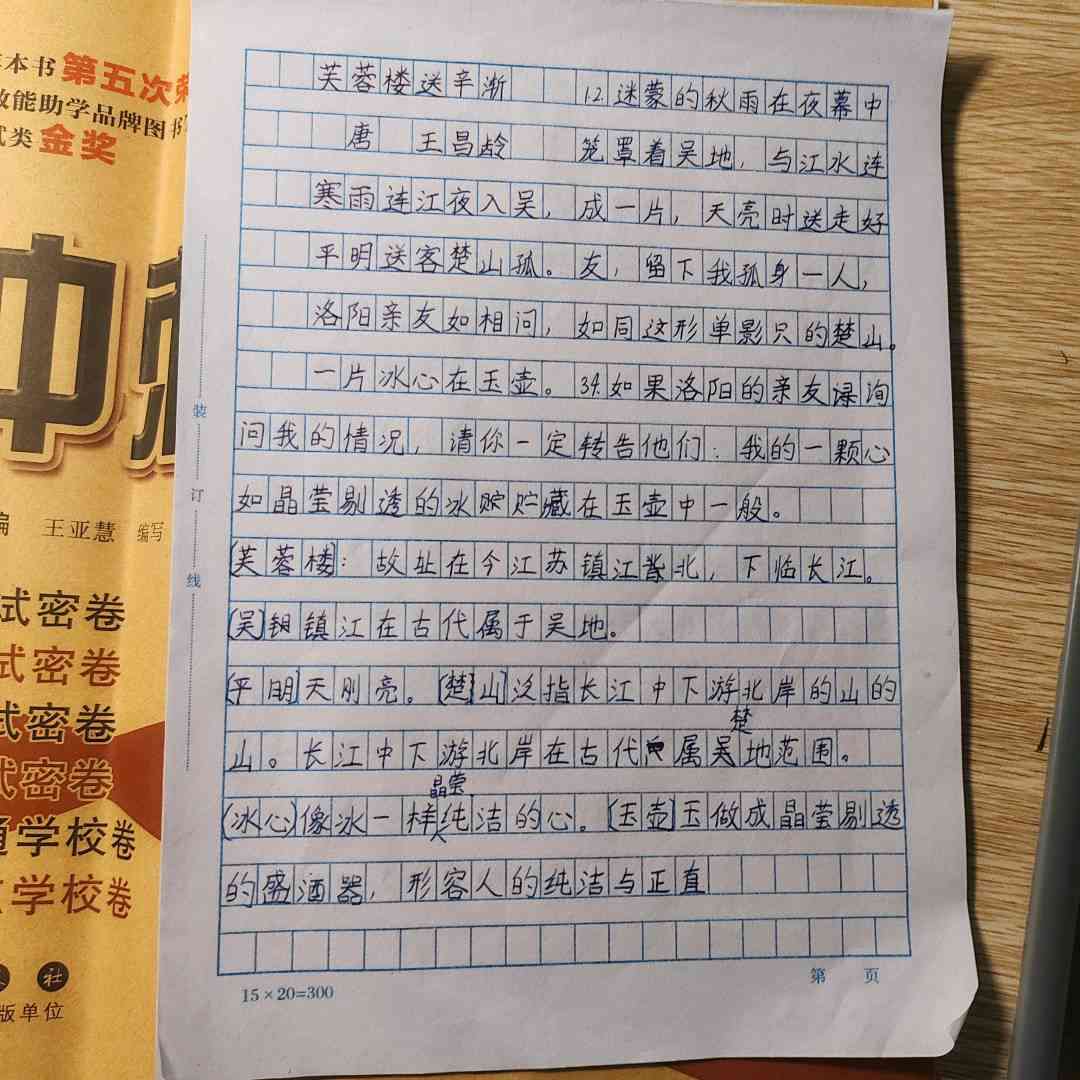 本书第五次荣
效能助学品牌图书
试类金奖
冲
编 王亚慧 编写
试密卷
试密卷
试密卷
试密卷
通学校卷
学校卷
社
版单位
装
订
线
芙蓉楼送辛渐
唐 王昌龄
寒雨连江夜入吴，
平明送客楚山孤。
洛阳亲友如相问，
一片冰心在玉壶。
12.迷蒙的秋雨在夜幕中
笼罩着吴地，与江水连
成一片，天亮时送走好
友，留下我孤身一人，
如同这形单影只的楚山。
34.如果洛阳的亲友询
问我的情况，请你一定转告他们：我的一颗心
如晶莹剔透的冰贮贮藏在玉壶中一般。
[芙蓉楼]：故址在今江苏镇江北，下临长江。
[吴]镇江在古代属于吴地。
[平明]天刚亮。[楚山]泛指长江中下游北岸的山的
楚
山。长江中下游北岸在古代属吴地范围。
晶莹
[冰心]像冰一样纯洁的心。[玉壶]玉做成晶莹剔透
的盛酒器，形容人的纯洁与正直
第 页
15×20=300